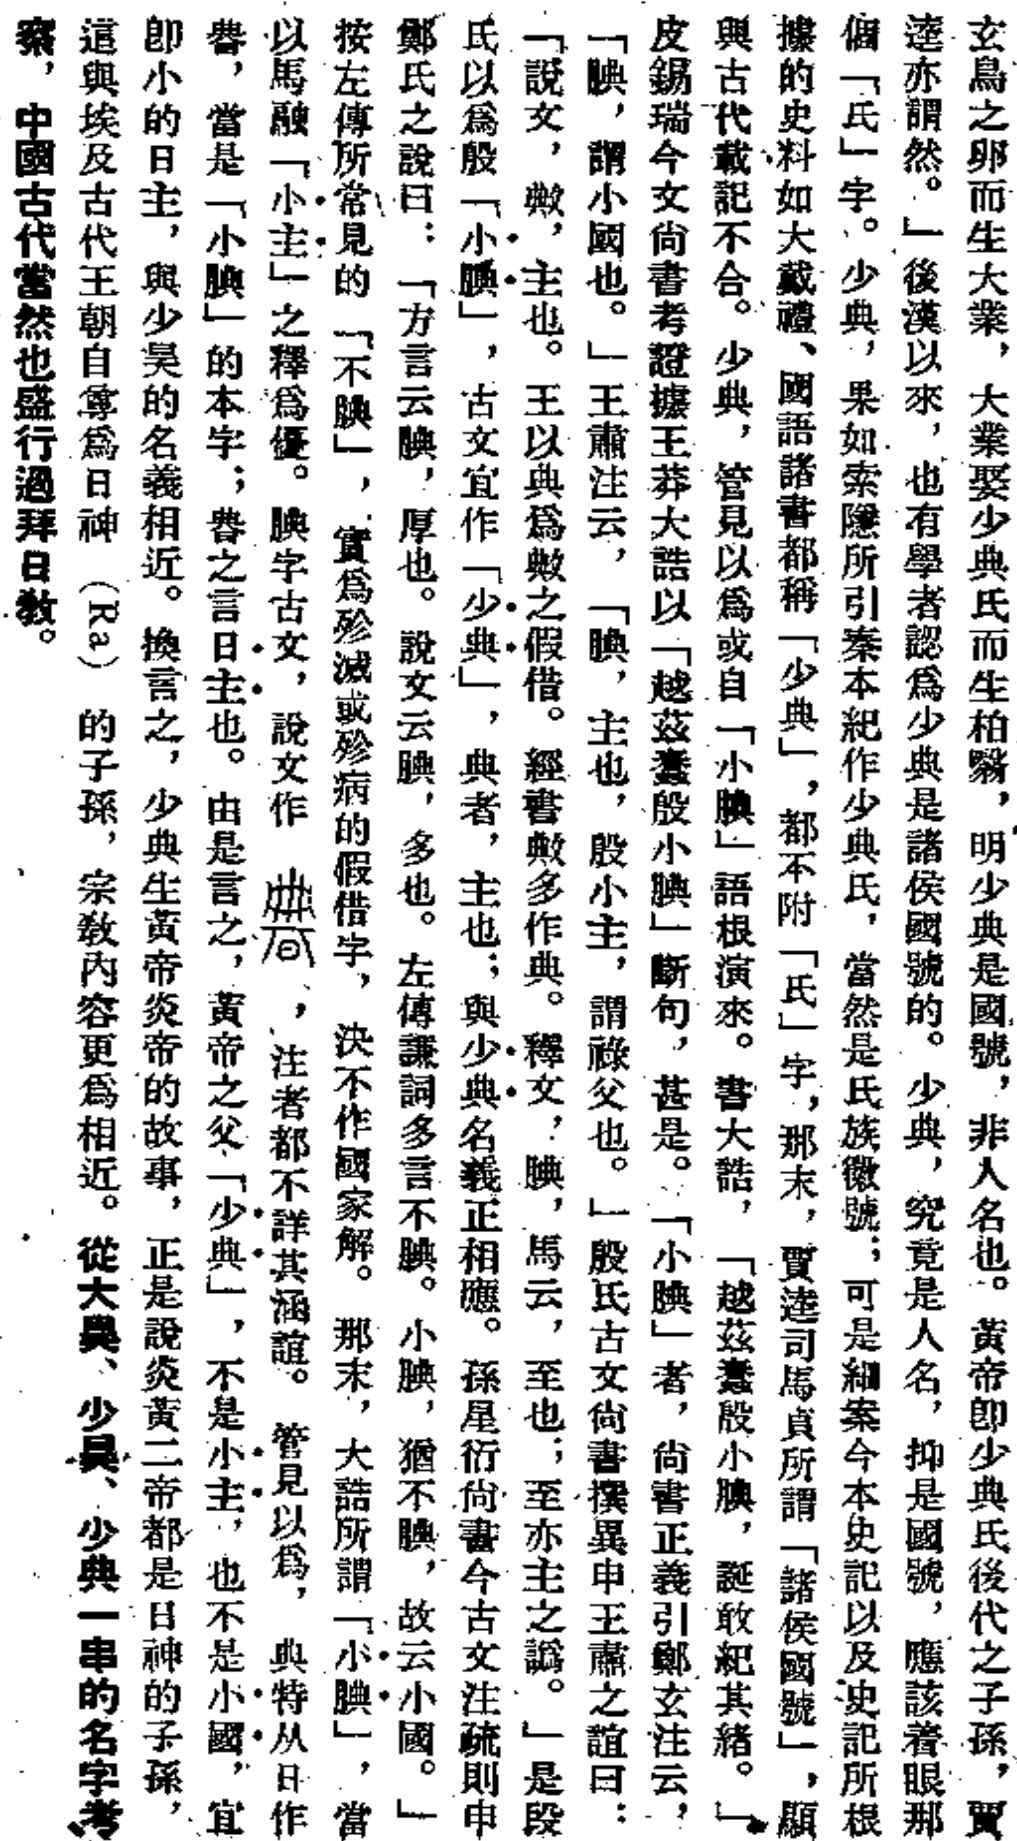 玄鳥之卵而生大業，大業娶少典氏而生柏翳，明少典是國號，非人名也。黃帝卽少典氏後代之子孫，賈
逵亦謂然。」後漢以來，也有學者認爲少典是諸侯國號的。少典，究竟是人名，抑是國號，應該着眼那
個「氏」字。少典，果如索隱所引秦本紀作少典氏，當然是氏族徽號；可是細案今本史記以及史記所根
據的史料如大戴禮、國語諸書都稱「少典」，都不附「氏」字，那末，賈逵司馬貞所謂「諸侯國號」，顯
與古代載記不合。少典，管見以爲或自「小腆」語根演來。書大誥，「越茲蠢殷小腆，誕敢紀其緒。」
皮錫瑞今文尙書考證據王莽大誥以「越茲蠢殷小腆」斷句，甚是。「小腆」者，尙書正義引鄭玄注云，
「腆，謂小國也。」王肅注云，「腆，主也，殷小主，謂祿父也。」殷氏古文尙書撰異申王肅之誼曰：
「說文，敟，主也。王以典爲敟之假借。經書敟多作典。釋文，腆，馬云，至也；至亦主之譌。」是段
氏以爲殷「小腆」，古文宜作「少典」，典者，主也；與少典名義正相應。孫星衍尙書今古文注疏則申
鄭氏之說曰：「方言云腆，厚也。說文云腆，多也。左傳謙詞多言不腆。小腆，猶不腆，故云小國。」
按左傳所常見的「不腆」，實爲殄滅或殄病的假借字，決不作國家解。那末，大誥所謂「小腆」，當
以馬融「小主」之釋爲優。腆字古文，說文作　，注者都不詳其涵誼。管見以爲，典特从日作
㫲，當是「小腆」的本字；㫲之言日主也。由是言之，黃帝之父「少典」，不是小主，也不是小國，宜
卽小的日主，與少昊的名義相近。換言之，少典生黃帝炎帝的故事，正是說炎黃二帝都是日神的子孫，
這與埃及古代王朝自尊爲日神（Ra）的子孫，宗敎內容更爲相近。從大昊、少昊、少典一串的名字考
察，中國古代當然也盛行過拜日敎。